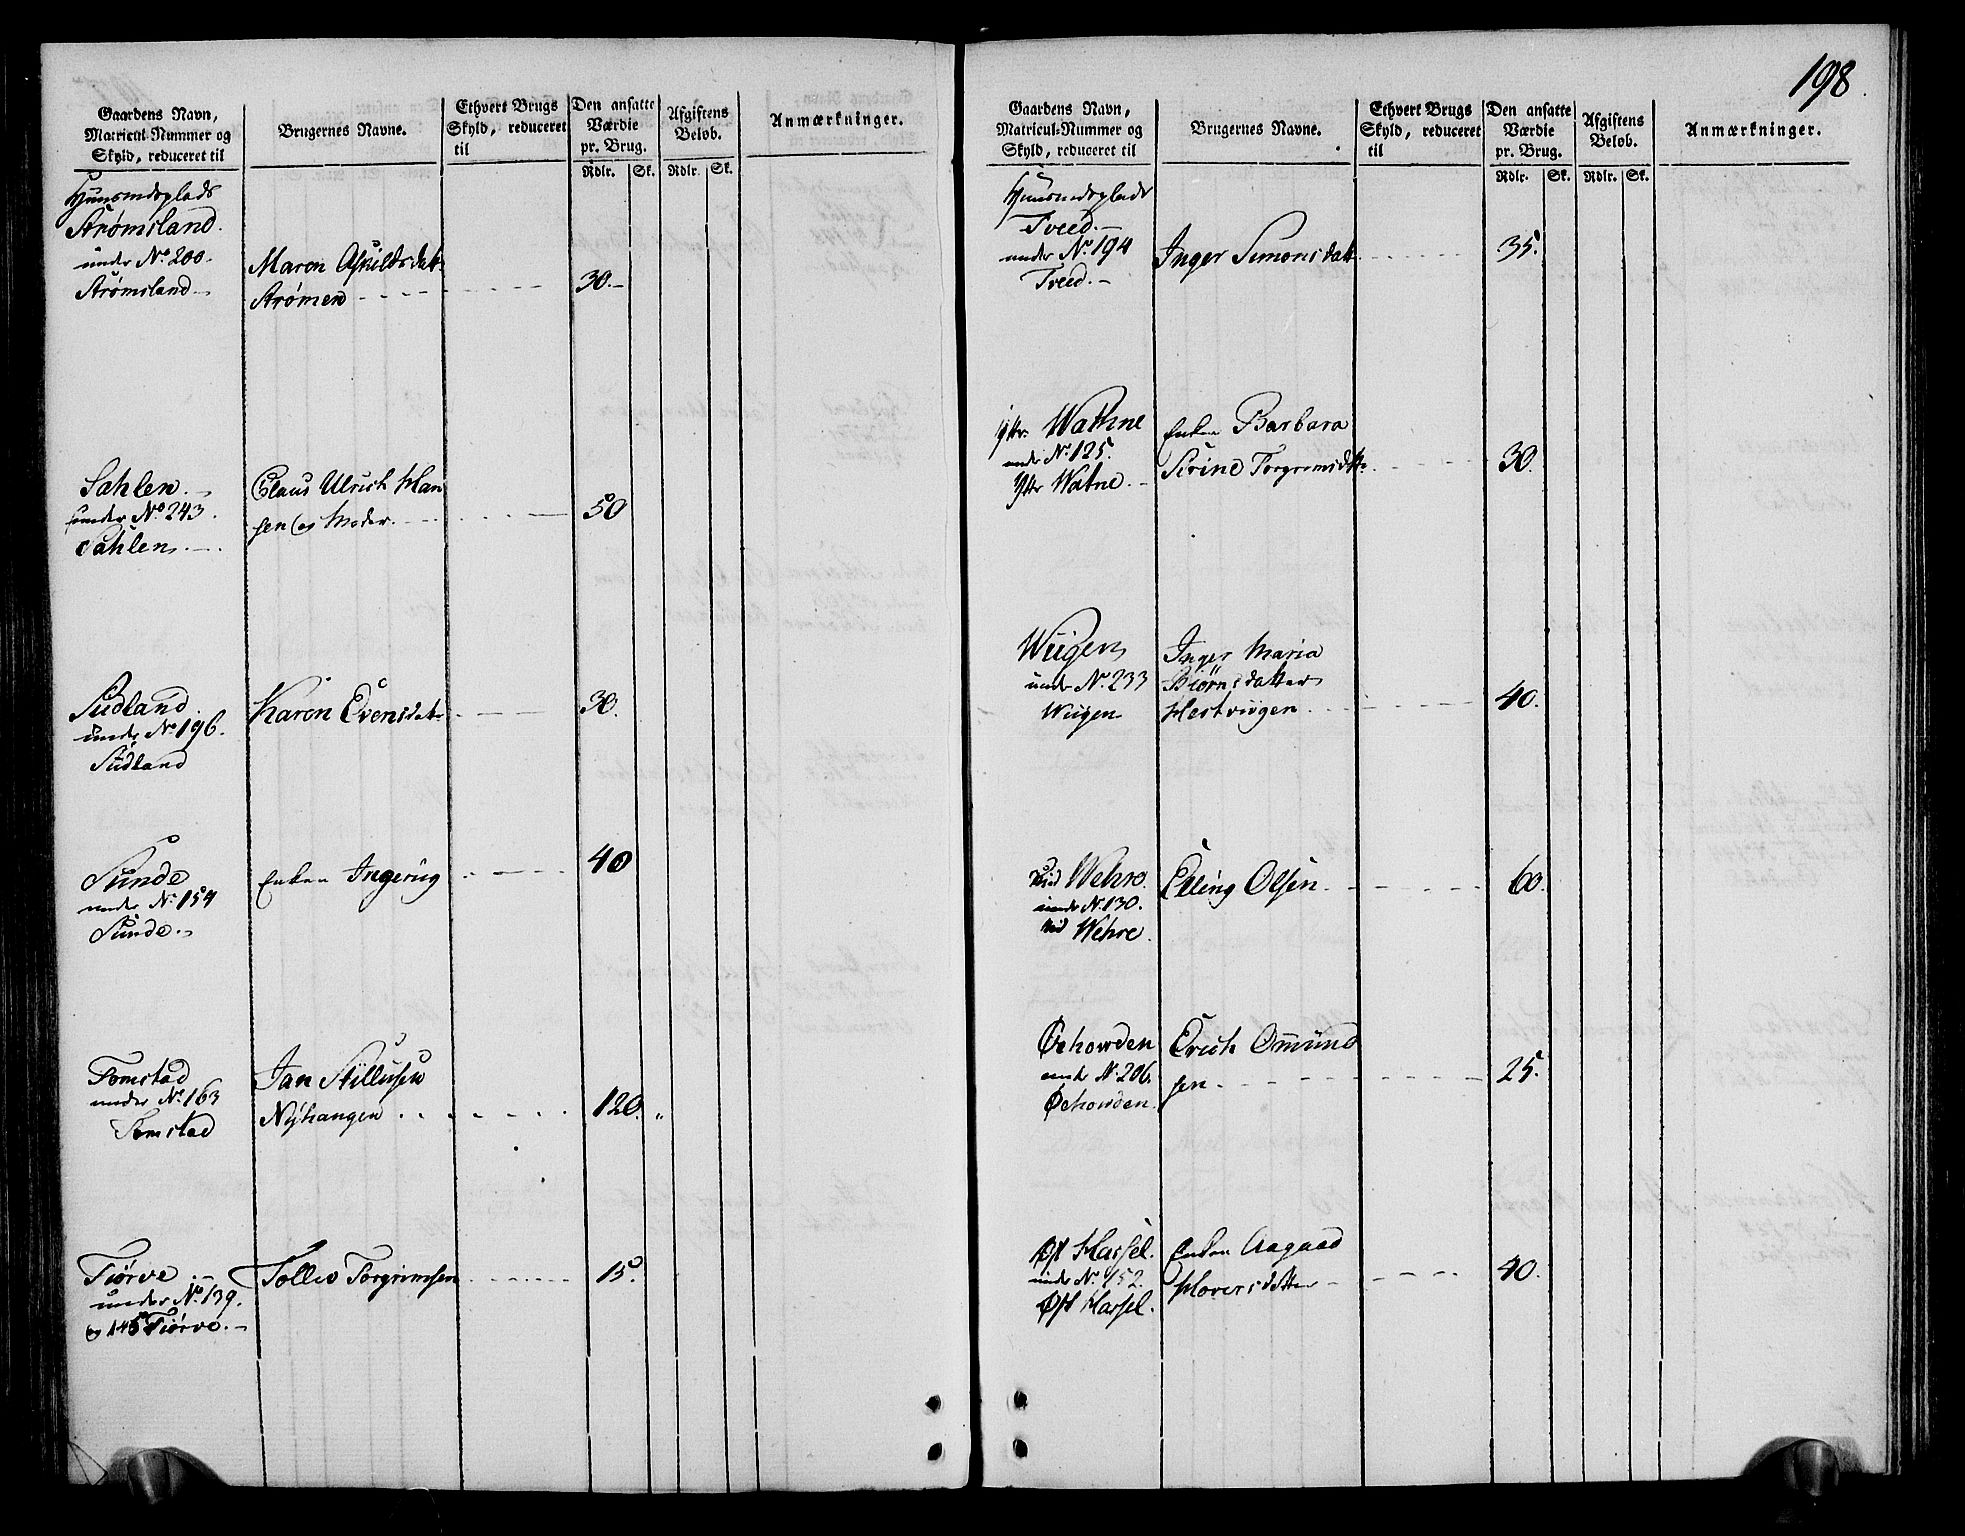 198.
Gaardens Navn,
Matricul-Nummer og
Skyld, reduceret til
Brugernes Navne.
Ethvert Brugs
Skyld, reduceret
til
Den ansatte
Værdie
pr. Brug.
Rdlr. Sk.
Afgiftens
Beløb.
Rdlr. Sk.
Anmærkninger.
Huusmdsplads
Strømsland.
under No 200.
Strømsland.
Maren Askildsdatr
Strømen 30.
Sahlen.
under No 243.
Sahlen.
Claus Ulrich Han
sen og Moder. 50
Sudland.
under No 196.
Sudland
Karen Evensdatr 30.
Sunde
under No 154
Sunde.
Enken Ingerug 40
Tomstad
under No 163
Tomstad
Jan Nyhangen 120. "
Tiørve
under No 139.
og 145 Tiørve.
Tollev Torgrimsen 15.
Gaardens Navn,
Matricul-Nummer og
Skyld, reduceret til
Brugernes Navne.
Ethvert Brugs
Skyld, reduceret
til
Den ansatte
Værdie
pr. Brug.
Rdlr. Sk.
Afgiftens
Beløb.
Rdlr. Sk.
Anmærkninger.
Huusmdsplads
Tveed.
under No 194
Tveed.
Inger Simonsdatr 35.
Yttr. Wathne
under No 125.
Yttr Watne.
Enken Barbara
Sirine Torgrimsdatr 30.
Wiigen
under No 233
Wiigen
Inger Maria
Biørnsdatter
Hestviigen 40.
Wehre.
under No 130.
Wehre.
Elling Olsen. 60.
Øehowden
under No 206.
Øehowden.
Erich Ommund
sen 25.
Øst Hassel.
under No 152.
Øst Hassel.
Enken Aagaad
Hoversdatter 40.